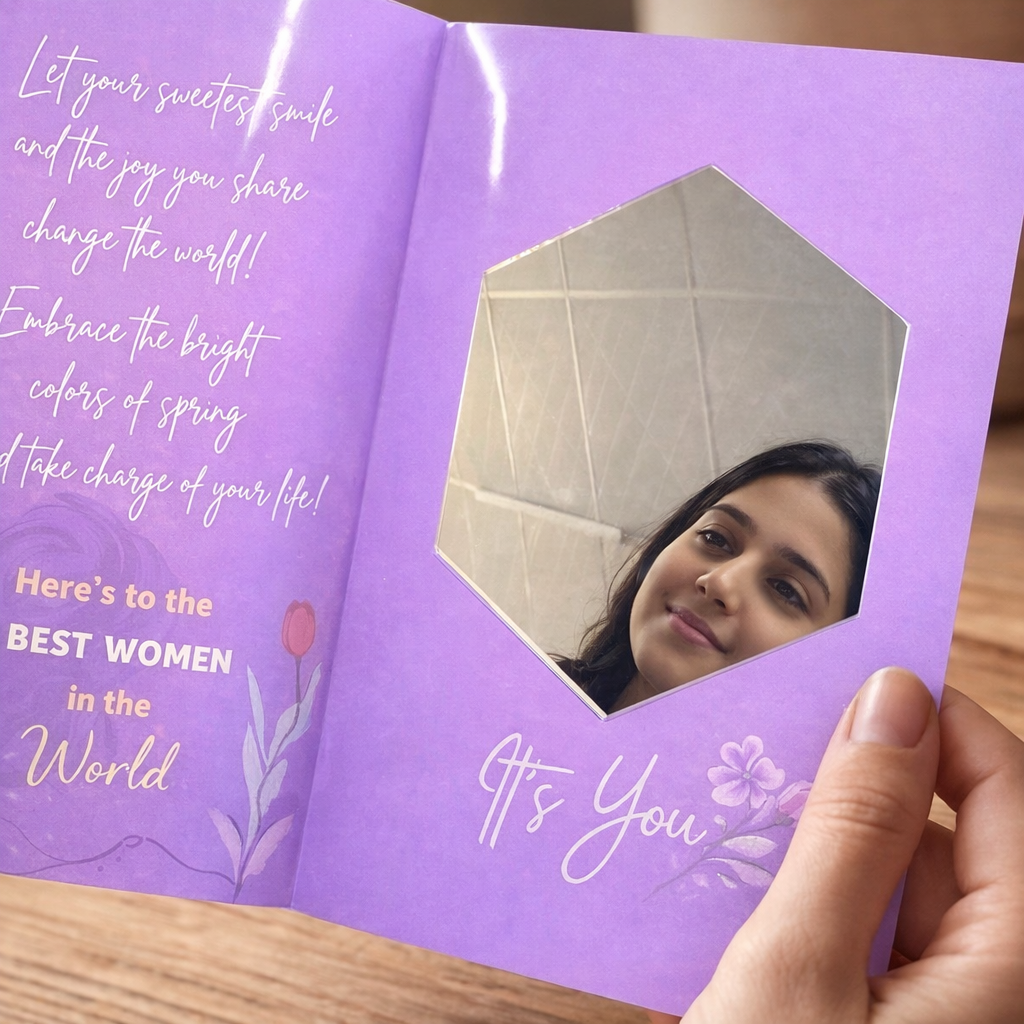 Let your sweetest smile
and the joy you share
change the world!
Embrace the bright
colors of spring
take charge of your life!
Here's to the
BEST WOMEN
in the
World
It's You